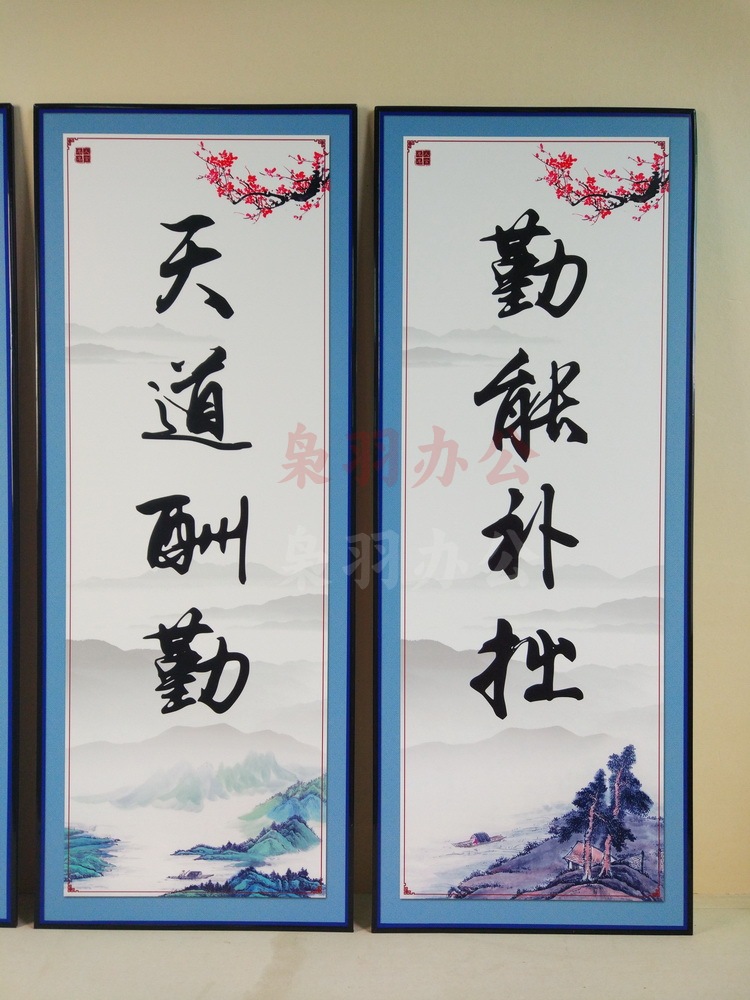 天道酬勤
勤能补拙
枭羽办公
枭羽办公